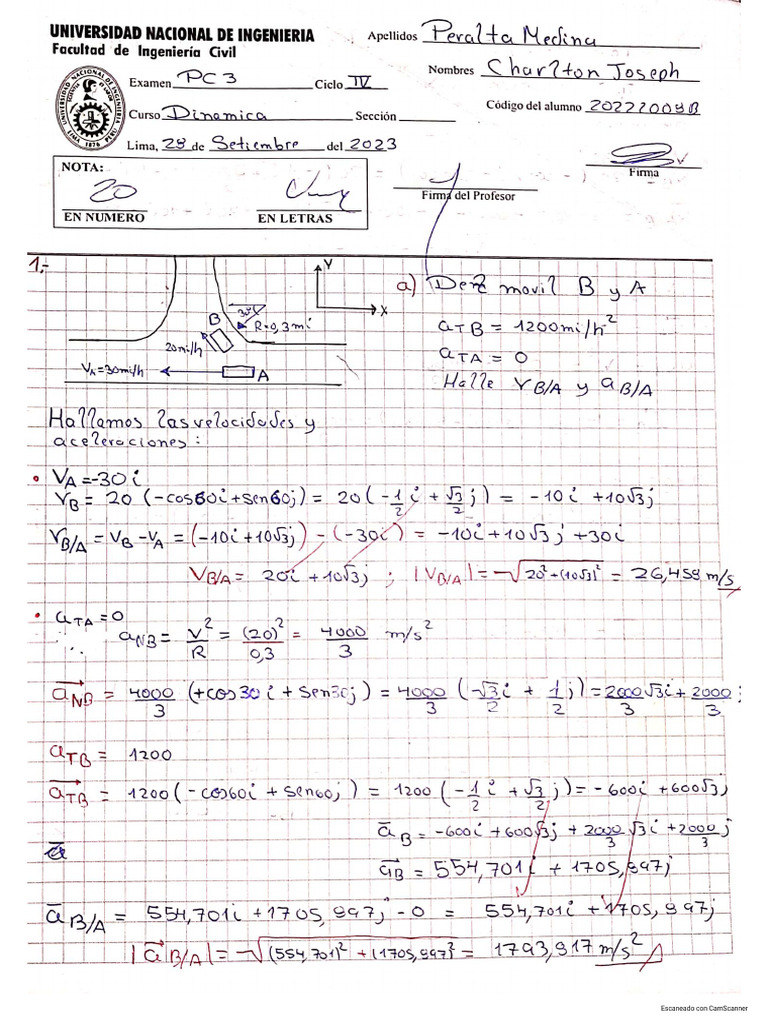 UNIVERSIDAD NACIONAL DE INGENIERIA
Facultad de Ingeniería Civil
Apellidos Peralta Medina
Nombres Charlton Joseph
Examen PC3 Ciclo IV
Código del alumno 20222009B
Curso Dinamica Sección
Lima, 28 de Setiembre del 2023
UNIVERSIDAD NACIONAL DE INGENIERIA
LIMA 1876 PERU
NOTA:
20
EN NUMERO EN LETRAS
Firma del Profesor
Firma
1.-
Y
X
B
30°
R=0,3mi
20mi/h
VA=30mi/h
A
a) movil B y A
aTB = 1200mi/h²
aTA = 0
Halle VB/A y aB/A
Hallamos las velocidades y
aceleraciones:
• VA=-30i
VB = 20 (-cos60i+sen60j) = 20(-1/2 i + √3/2 j) = -10i +10√3j
VB/A = VB -VA = (-10i+10√3j) - (-30i) = -10i+10√3j +30i
VB/A = 20i +10√3j ; |VB/A| = √20²+(10√3)² = 26,458 m/s
• aTA=0
aNB = V²/R = (20)²/0,3 = 4000/3 m/s²
aNB = 4000/3 (+cos30i + sen30j) = 4000/3 (√3/2 i + 1/2 j) = 2000√3/3 i + 2000/3 j
aTB = 1200
aTB = 1200(-cos60i + sen60j) = 1200(-1/2 i + √3/2 j) = -600i +600√3j
aB = -600i +600√3j + 2000/3 √3i + 2000/3 j
aB = 554,701i + 1705,897j
aB/A = 554,701i +1705,897j - 0 = 554,701i +1705,897j
|aB/A| = √(554,701)² +(1705,897)² = 1793,817 m/s²
Escaneado con CamScanner